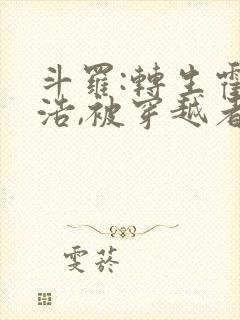 斗羅:轉生霍
浩,被穿越者
雯菸